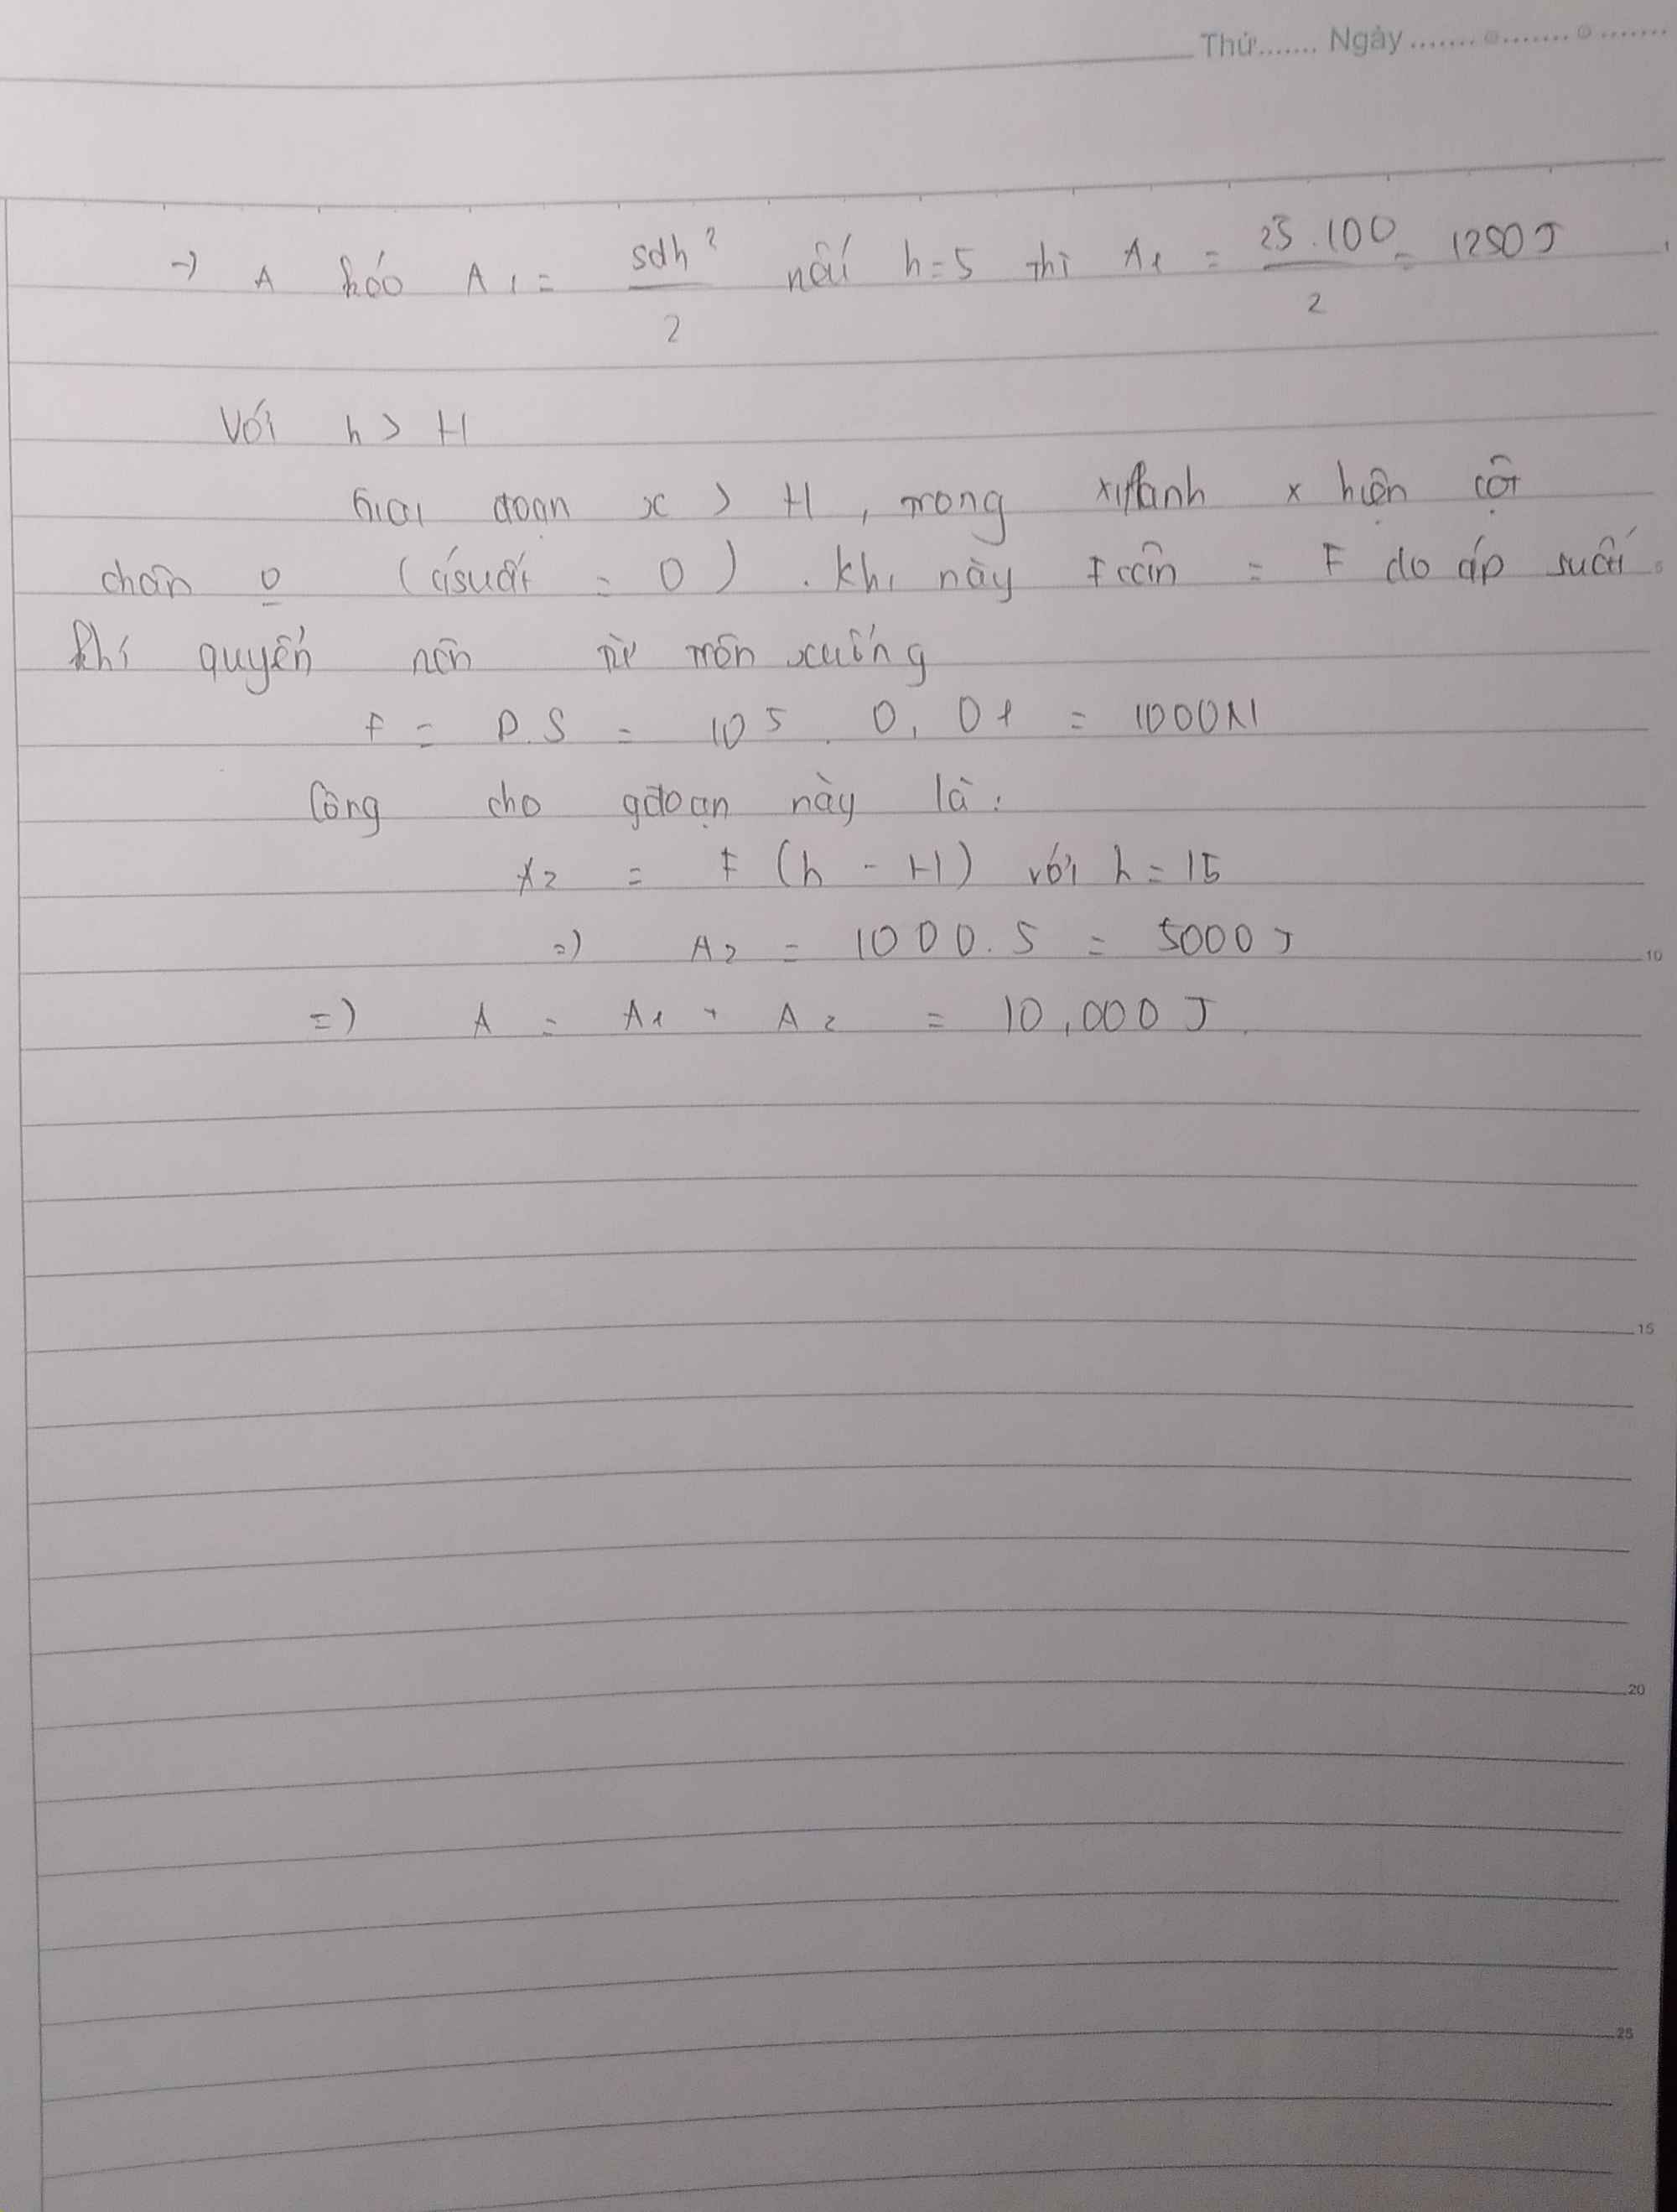 Thứ....... Ngày.......
→ A kéo A1 = Sdh²/2 nếu h=5 thì A1 = 25.100/2 = 1250J
Với h > H
Giai đoạn x > H, trong xilanh x hiện cột
chân o (ásuất = 0). Khi này F cần = F do áp suất
khí quyển nén từ trên xuống
F = P.S = 10 5 . 0,01 = 1000N
Công cho gđoạn này là:
A2 = F (h - H) với h = 15
=) A2 = 1000.5 = 5000J
10
=) A = A1 + A2 = 10,000 J.
15
20
25